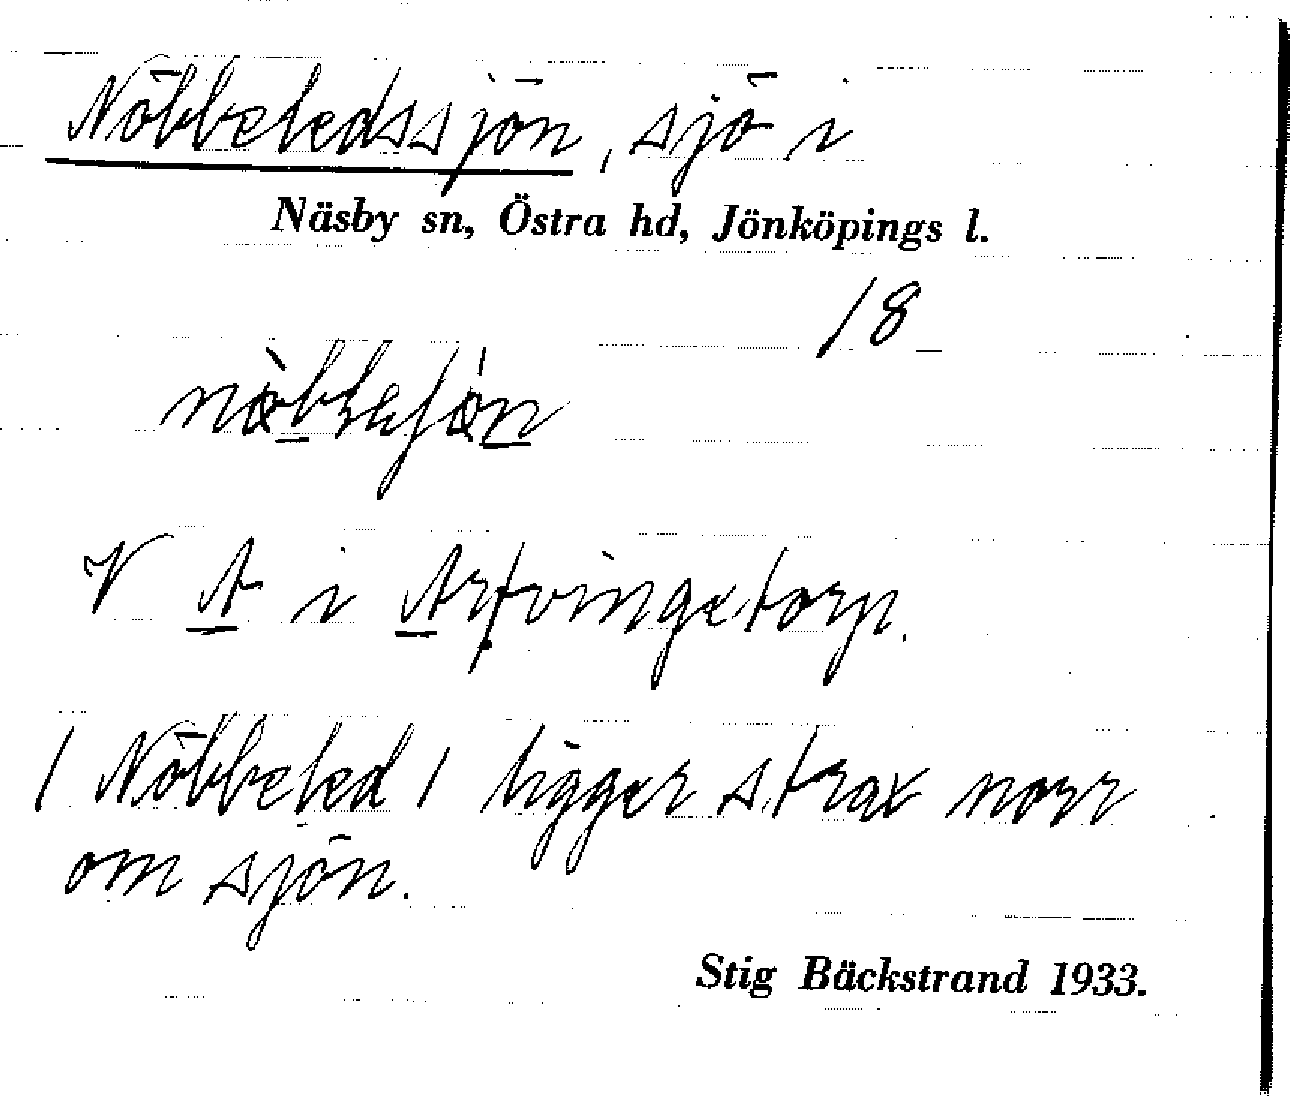 Nöbbeledssjön, sjö i
Näsby sn, Östra hd, Jönköpings l.
18
V A i Artvingetorp.
/ Nöbbeled / ligger strax norr
om sjön.
Stig Bäckstrand 1933.